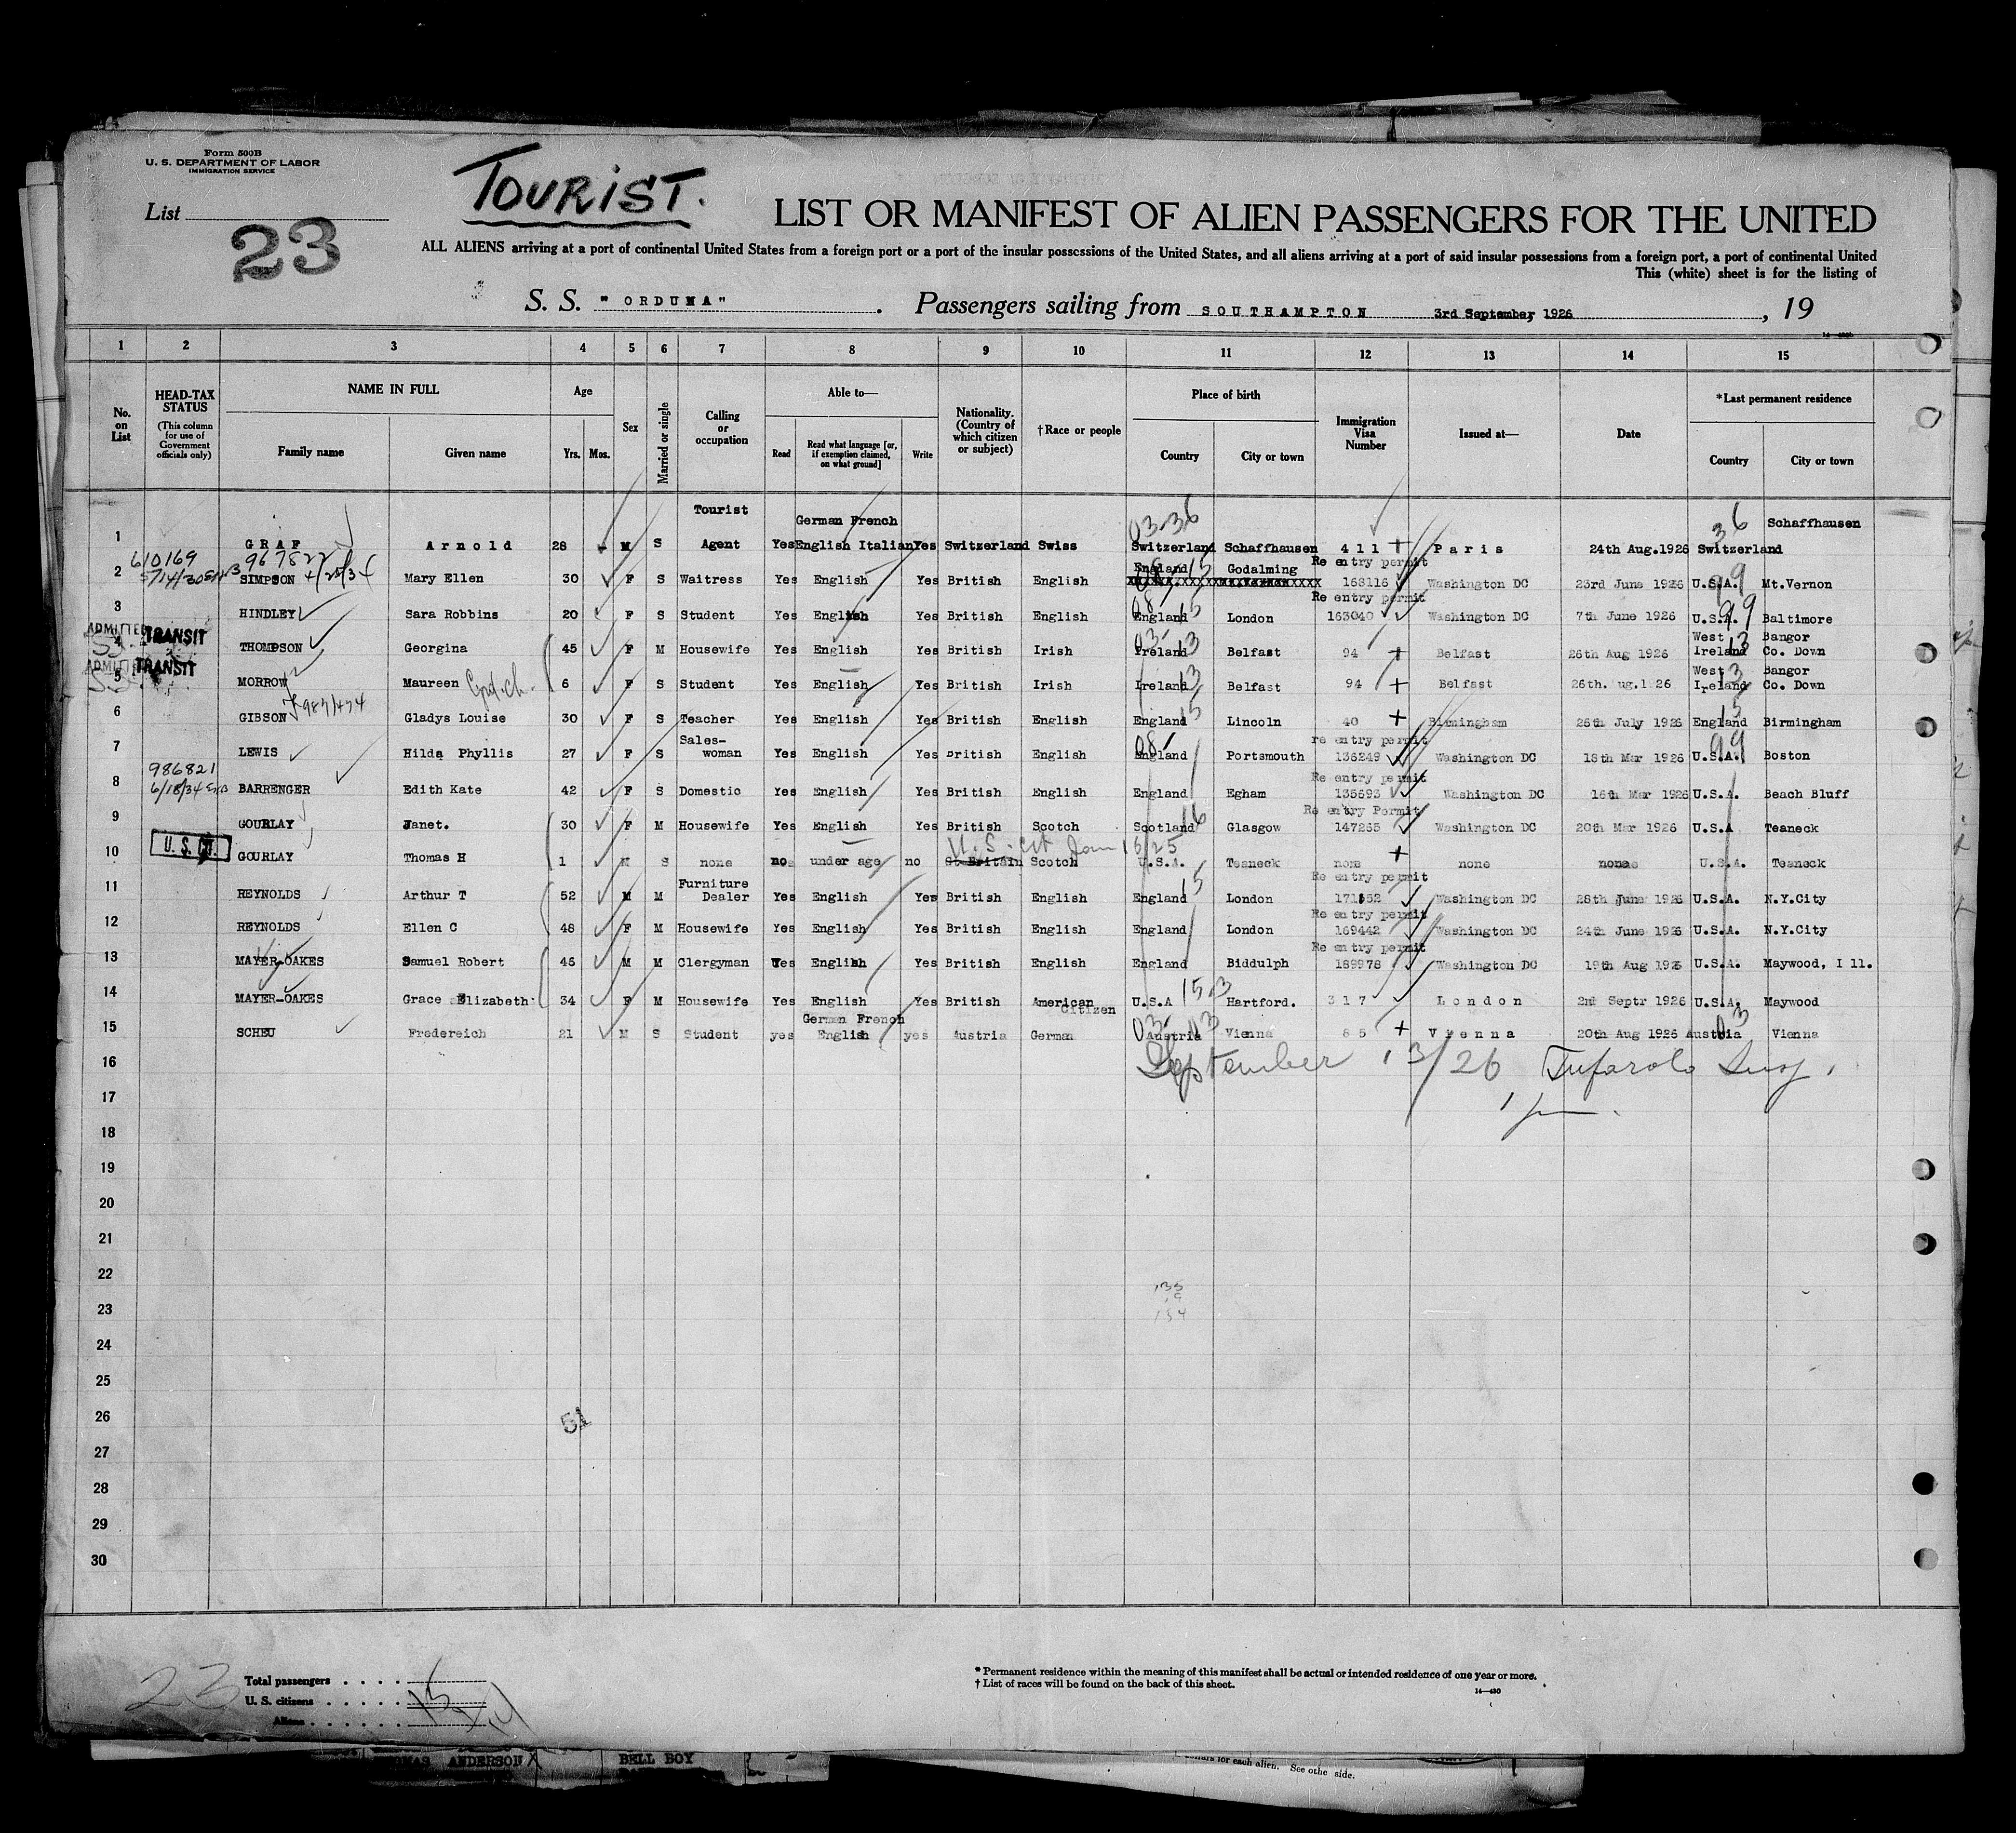 Form 500B
U. S. DEPARTMENT OF LABOR
IMMIGRATION SERVICE
List
23
TOURIST.
LIST OR MANIFEST OF ALIEN PASSENGERS FOR THE UNITED
ALL ALIENS arriving at a port of continental United States from a foreign port or a port of the insular possessions of the United States, and all aliens arriving at a port of said insular possessions from a foreign port, a port of continental United
This (white) sheet is for the listing of
S. S. "ORDUNA". Passengers sailing from SOUTHAMPTON 3rd September, 1926, 19
1 2 3 4 5 6 7 8 9 10 11 12 13 14 15
No. on List
HEAD-TAX STATUS (This column for use of Government officials only)
NAME IN FULL Family name Given name
Age Yrs. Mos.
Sex
Married or single
Calling or occupation
Able to— Read Read what language [or, if exemption claimed, on what ground] Write
Nationality. (Country of which citizen or subject)
†Race or people
Place of birth Country City or town
Immigration Visa Number
Issued at—
Date
*Last permanent residence Country City or town
Tourist German French 03-36 36 Schaffhausen
1 GRAF Arnold 28 M S Agent Yes English Italian Yes Switzerland Swiss Switzerland Schaffhausen 411 Paris 24th Aug.1926 Switzerland
610169 967822 England Godalming Re entry permit
2 5/14/30 SIMPSON Mary Ellen 30 F S Waitress Yes English Yes British English 163116 Washington DC 23rd June 1926 U.S.A. Mt.Vernon
Re entry permit
3 HINDLEY Sara Robbins 20 F S Student Yes English Yes British English England London 163040 Washington DC 7th June 1926 U.S.A. Baltimore
ADMITTED TRANSIT West Bangor
4 THOMPSON Georgina 45 F M Housewife Yes English Yes British Irish Ireland Belfast 94 Belfast 26th Aug 1926 Ireland Co. Down
ADMITTED TRANSIT West Bangor
5 MORROW Maureen Gd.ch. 6 F S Student Yes English Yes British Irish Ireland Belfast 94 Belfast 26th. ug.1926 Ireland Co. Down
6 GIBSON Gladys Louise 30 F S Teacher Yes English Yes British English England Lincoln 40 Birmingham 26th July 1926 England Birmingham
Sales- re entry permit
7 LEWIS Hilda Phyllis 27 F S woman Yes English Yes British English England Portsmouth 136249 Washington DC 18th Mar 1926 U.S.A. Boston
986821 Re entry permit
8 6/18/34 BARRENGER Edith Kate 42 F S Domestic Yes English Yes British English England Egham 135693 Washington DC 16th Mar 1926 U.S.A. Beach Bluff
Re entry Permit
9 GOURLAY Janet. 30 F M Housewife Yes English Yes British Scotch Scotland Glasgow 147265 Washington DC 20th Mar 1926 U.S.A Teaneck
U.S. Cit Jan 16/25
10 U. S. CIT. GOURLAY Thomas H 1 M S none no under age no Gt Britain Scotch U.S.A. Teaneck none none none U.S.A. Teaneck
Furniture Re entry permit
11 REYNOLDS Arthur T 52 M M Dealer Yes English Yes British English England London 171552 Washington DC 28th June 1926 U.S.A. N.Y.City
Re entry permit
12 REYNOLDS Ellen C 48 F M Housewife Yes English Yes British English England London 169442 Washington DC 24th June 1926 U.S.A. N.Y.City
Re entry permit
13 MAYER-OAKES Samuel Robert 45 M M Clergyman Yes English Yes British English England Biddulph 189978 Washington DC 19th Aug 1925 U.S.A. Maywood, Ill.
14 MAYER-OAKES Grace Elizabeth 34 F M Housewife Yes English Yes British American Citizen U.S.A Hartford. 317 London 2nd Septr 1926 U.S.A. Maywood
German French
15 SCHEU Fredereich 21 M S Student yes English yes Austria German Austria Vienna 85 Vienna 20th Aug 1926 Austria Vienna
16 September 13/26
17
18
19
20
21
22
23
24
25
26 51
27
28
29
30
23
Total passengers 15
U. S. citizens
Aliens 14
* Permanent residence within the meaning of this manifest shall be actual or intended residence of one year or more.
† List of races will be found on the back of this sheet.
ANDERSON BELL BOY
for each alien. See othe side.